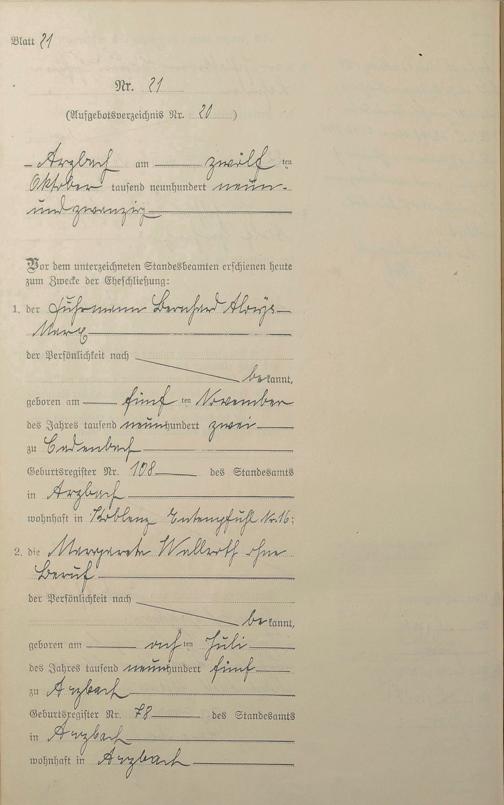 Blatt 21
Nr. 21
(Aufgebotsverzeichnis Nr. 20)
Arzbach am zwölf ten
Oktober tausend neunhundert neun-
undzwanzig
Vor dem unterzeichneten Standesbeamten erschienen heute
zum Zwecke der Eheschließung:
1. der Fuhrmann Bernhard Aloys
Marx
der Persönlichkeit nach
bekannt,
geboren am fünf ten November
des Jahres tausend neunhundert zwei
zu Cadenbach
Geburtsregister Nr. 108 des Standesamts
in Arzbach
wohnhaft in Koblenz Entenpfuhl Nr. 16;
2. die Margareta Wallroth ohne
Beruf
der Persönlichkeit nach
bekannt,
geboren am ach ten Juli
des Jahres tausend neunhundert fünf
zu Arzbach
Geburtsregister Nr. 78 des Standesamts
in Arzbach
wohnhaft in Arzbach